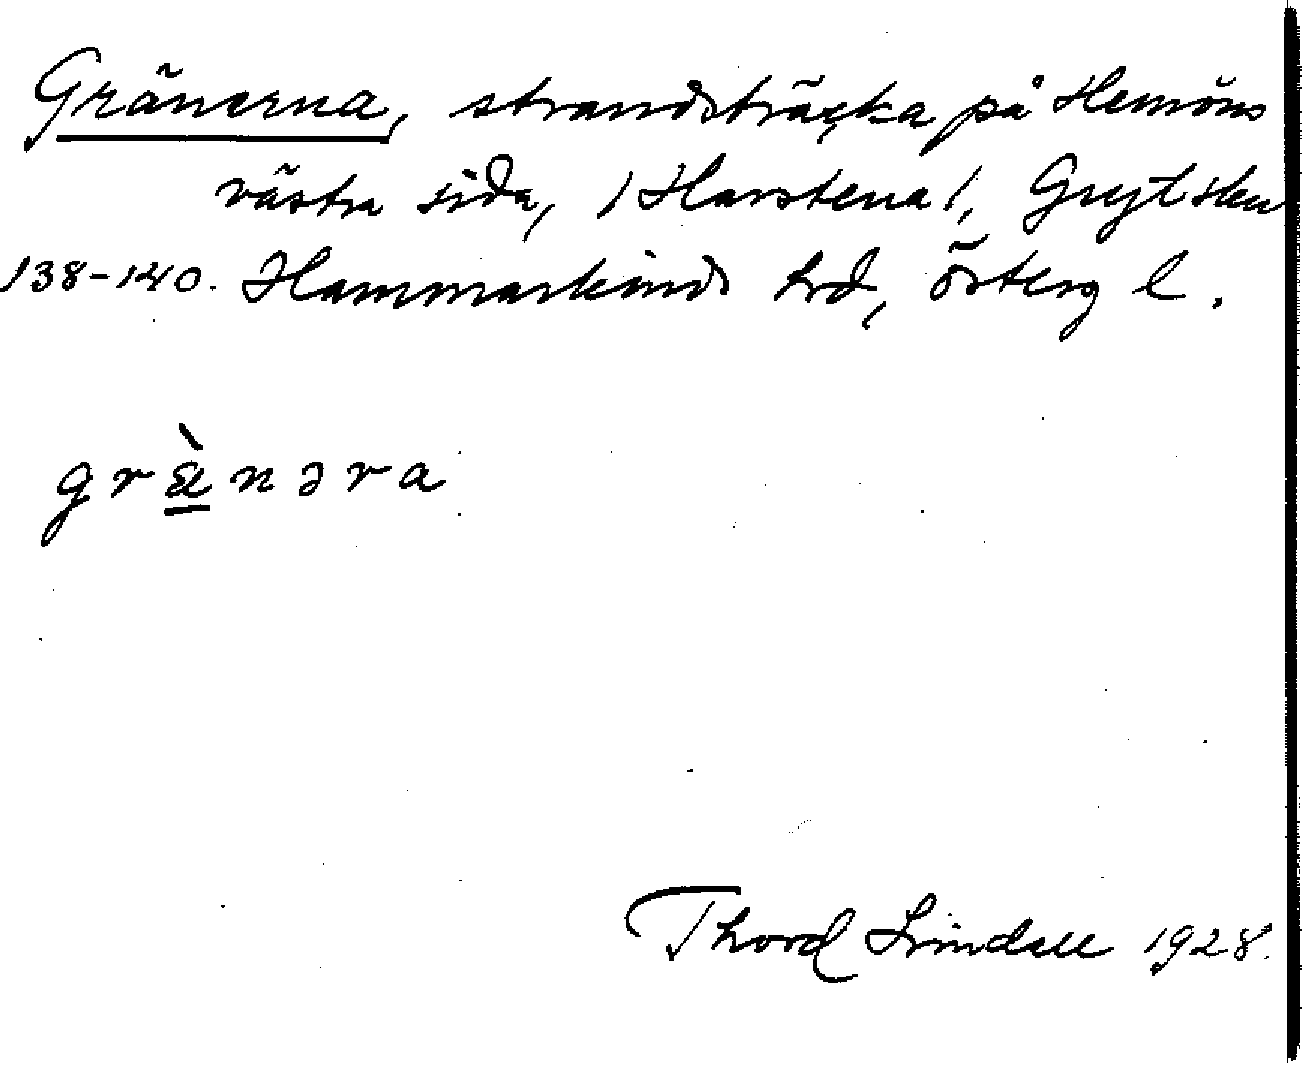 Gränerna, strandsträcka på Hemöns
västra sida, /Harstena/, Gryt skn
138-140. Hammarkinds hrd, Österg l.
grænəra
Thord Lindell 1928.